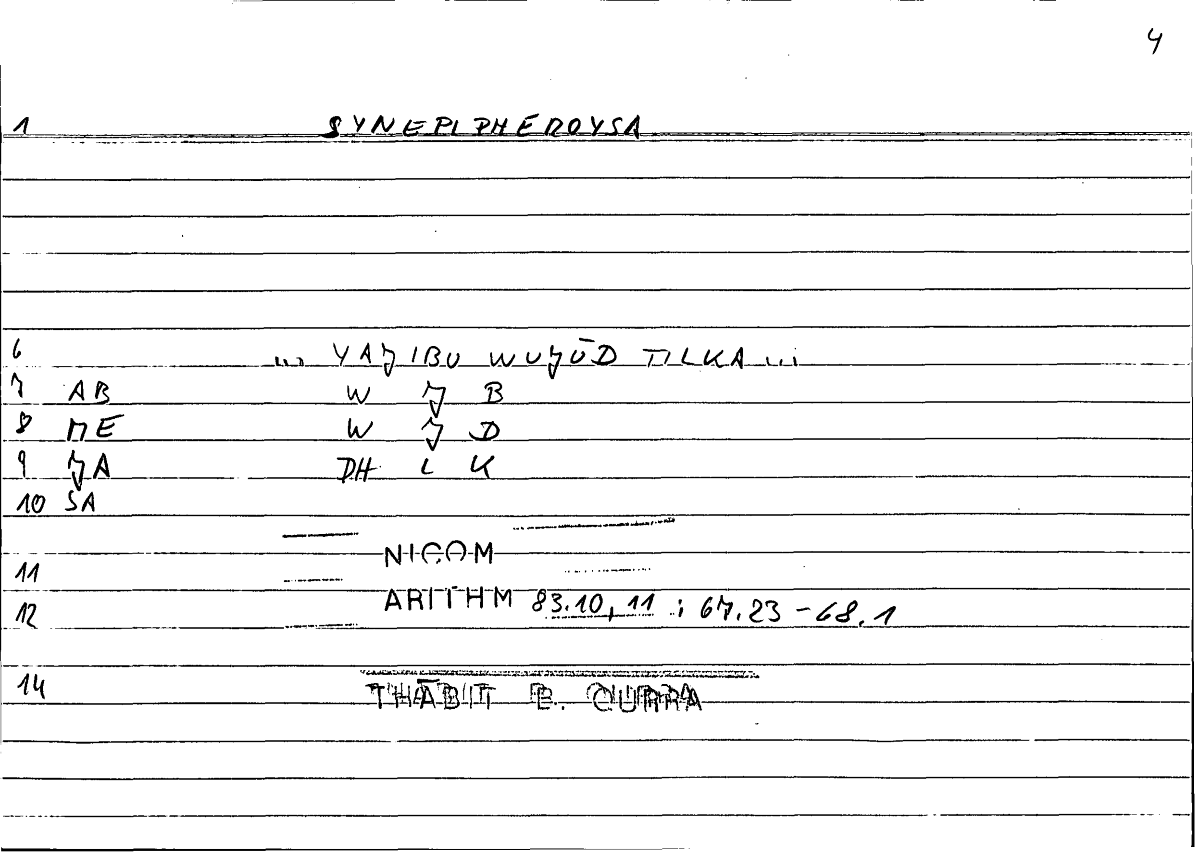 4
1 SYNEPIPHEROYSA
6 ... YAJIBU WUJŪD TILKA ...
7 AB W J B
8 ME W J D
9 JA DH L K
10 SA
NICOM
11
ARITHM 83.10, 11 ; 67.23 - 68.1
12
14 THĀBIT B. QURRA